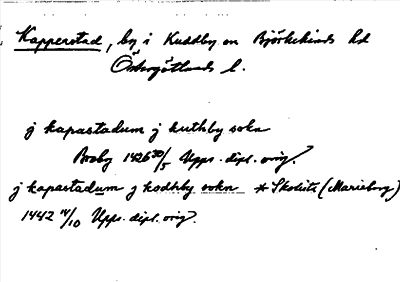 Kapperstad, by i Kuddby sn Björkekinds hd
Östergötlands l.
j kapastadum j kuthby sokn
Broby 1426 30/5 Upps. dipl. orig.
j kapastadum j kodhby sokn * Skokloster (Marieborg)
1442 14/10 Upps. dipl. orig.